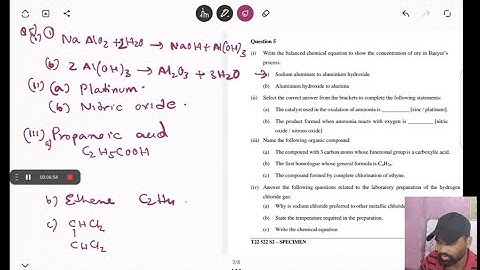 Q5) (i) (a)
NaAlO2 + 2H2O → NaOH + Al(OH)3
(b) 2Al(OH)3 → Al2O3 + 3H2O
(ii) (a) Platinum.
(b) Nitric oxide.
(iii) a) Propanoic acid
C2H5COOH
b) Ethene C2H4
c) CHCl2
|
CHCl2
00:06:54
7/8
Question 5
(i) Write the balanced chemical equation to show the concentration of ore in Baeyer's
process.
(a) Sodium aluminate to aluminium hydroxide
(b) Aluminium hydroxide to alumina
(ii) Select the correct answer from the brackets to complete the following statements:
(a) The catalyst used in the oxidation of ammonia is ________ [zinc / platinum].
(b) The product formed when ammonia reacts with oxygen is ________ [nitric
oxide / nitrous oxide]
(iii) Name the following organic compound:
(a) The compound with 3 carbon atoms whose functional group is a carboxylic acid.
(b) The first homologue whose general formula is CnH2n.
(c) The compound formed by complete chlorination of ethyne.
(iv) Answer the following questions related to the laboratory preparation of the hydrogen
chloride gas:
(a) Why is sodium chloride preferred to other metallic chlorides
(b) State the temperature required in the preparation.
(c) Write the chemical equation
T22 522 S2 – SPECIMEN